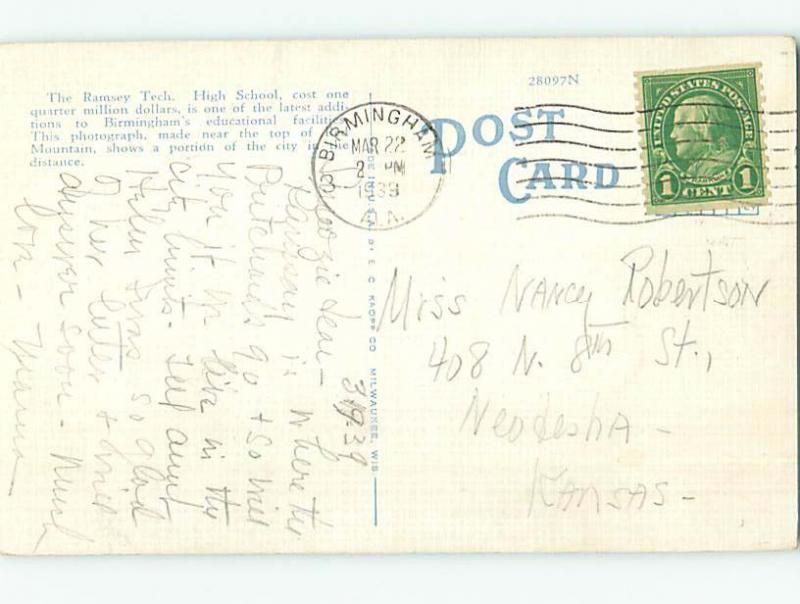 The Ramsey Tech. High School, cost one
quarter million dollars, is one of the latest addi-
tions to Birmingham's educational facilities.
This photograph, made near the top of
Mountain, shows a portion of the city in the
distance.
28097N
POST
CARD
BIRMINGHAM
MAR 22
2 PM
1939
ALA.
UNITED STATES POSTAGE
FRANKLIN
1 CENT 1
E. C. KROPP CO. MILWAUKEE, WIS.
3-19-39
dear—
Ramsay is where the
Pritchards go & so will
you if you live in the
city limits. Tell aunt
Helen I was so glad
her letter & will
answer soon. Much
love—
Miss Nancy Robertson
408 N. 8th St.,
Neodesha—
Kansas—